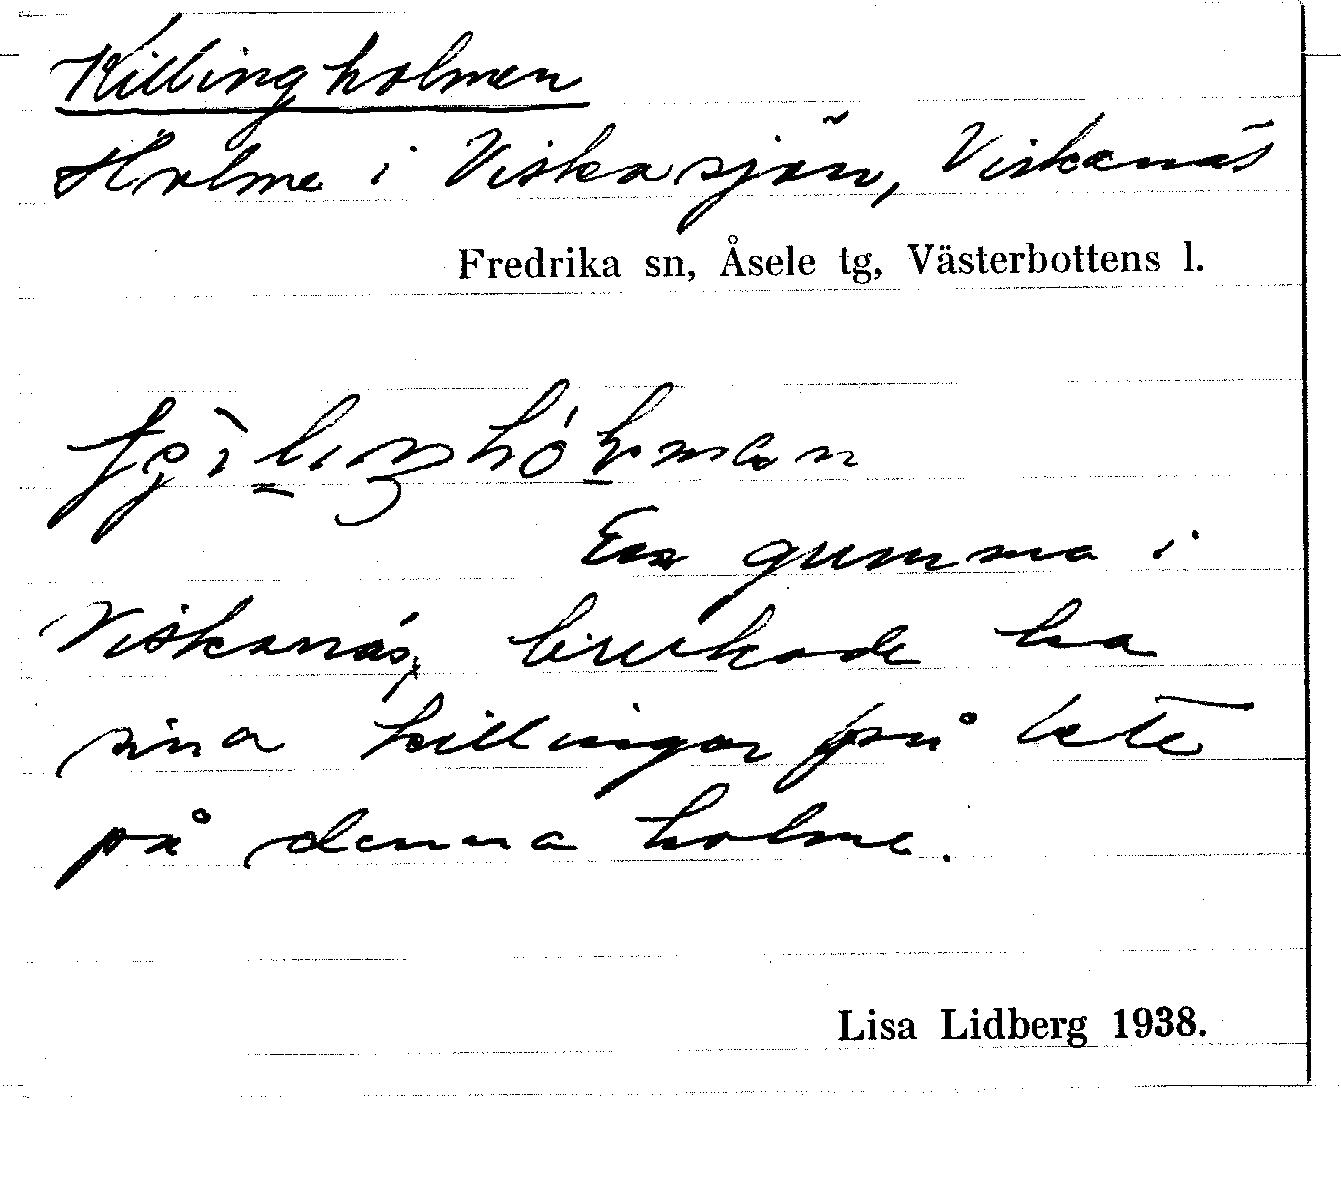 Killingholmen
Holme i Viskasjön, Viskanäs
Fredrika sn, Åsele tg, Västerbottens l.
En gumma i
Viskanäs, brukade ha
sina killingar på bete
på denna holme.
Lisa Lidberg 1938.